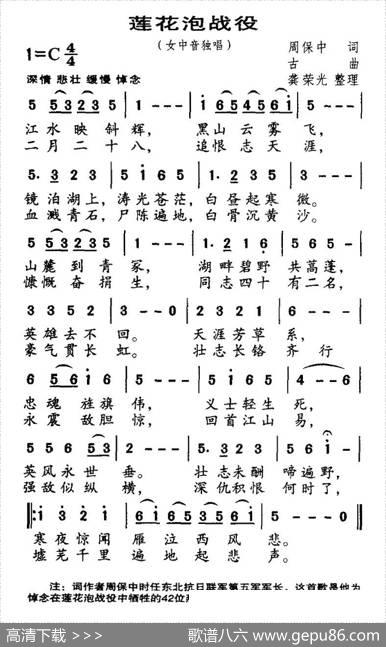 莲花泡战役
（女中音独唱）
1=C 4/4
周保中 词
古 曲
龚荣光 整理
深情 悲壮 缓慢 悼念
5 5323 5 | 1 - - - | i 6 5 4 5 6 i | 5 - - - |
江水映斜辉， 黑山云雾飞，
二月二十八， 追恨志天涯，
5. 3 2 3 | 5 i 6 5 | 1. 2 3 5 | 3 - - - |
镜泊湖上，涛光苍茫，白昼起寒微。
血溅青石，尸陈遍地，白骨沉黄沙。
5 5323 5 | 1 - - - | 1. 2 1 6 | 5 6 5 - |
山麓到青冢， 湖畔碧野共蒿蓬，
慷慨奋捐生， 同志四十有二名，
3 3 5 2 | 3 - - 0 | 2 3 2 1 | 6 - - - |
英雄去不回。 天涯芳草系，
豪气贯长虹。 壮志长铭齐行
6 5 6 i 6 | 5 - - - | 5 i 6 5 | 4 - - 6 |
忠魂旌旗伟， 义士轻生死，
永震敌胆惊， 回首江山易，
5 5 6 5 3 | 2 - - 0 | 5. 3 2 3 | 5 6 i - |
英风永世垂。 壮志未酬啼遍野，
强敌似纵横， 深仇积恨何时了，
i 3 2 1 | i 6 i 5 6 5 3 | 5 - - - | 5 - - 0
寒夜惊闻雁泣西风悲。
墟芜千里遍地起悲声。
注：词作者周保中时任东北抗日联军第五军军长，这首歌是他为
悼念在莲花泡战役中牺牲的42位
高清下载 >>> 歌谱八六 www.gepu86.com